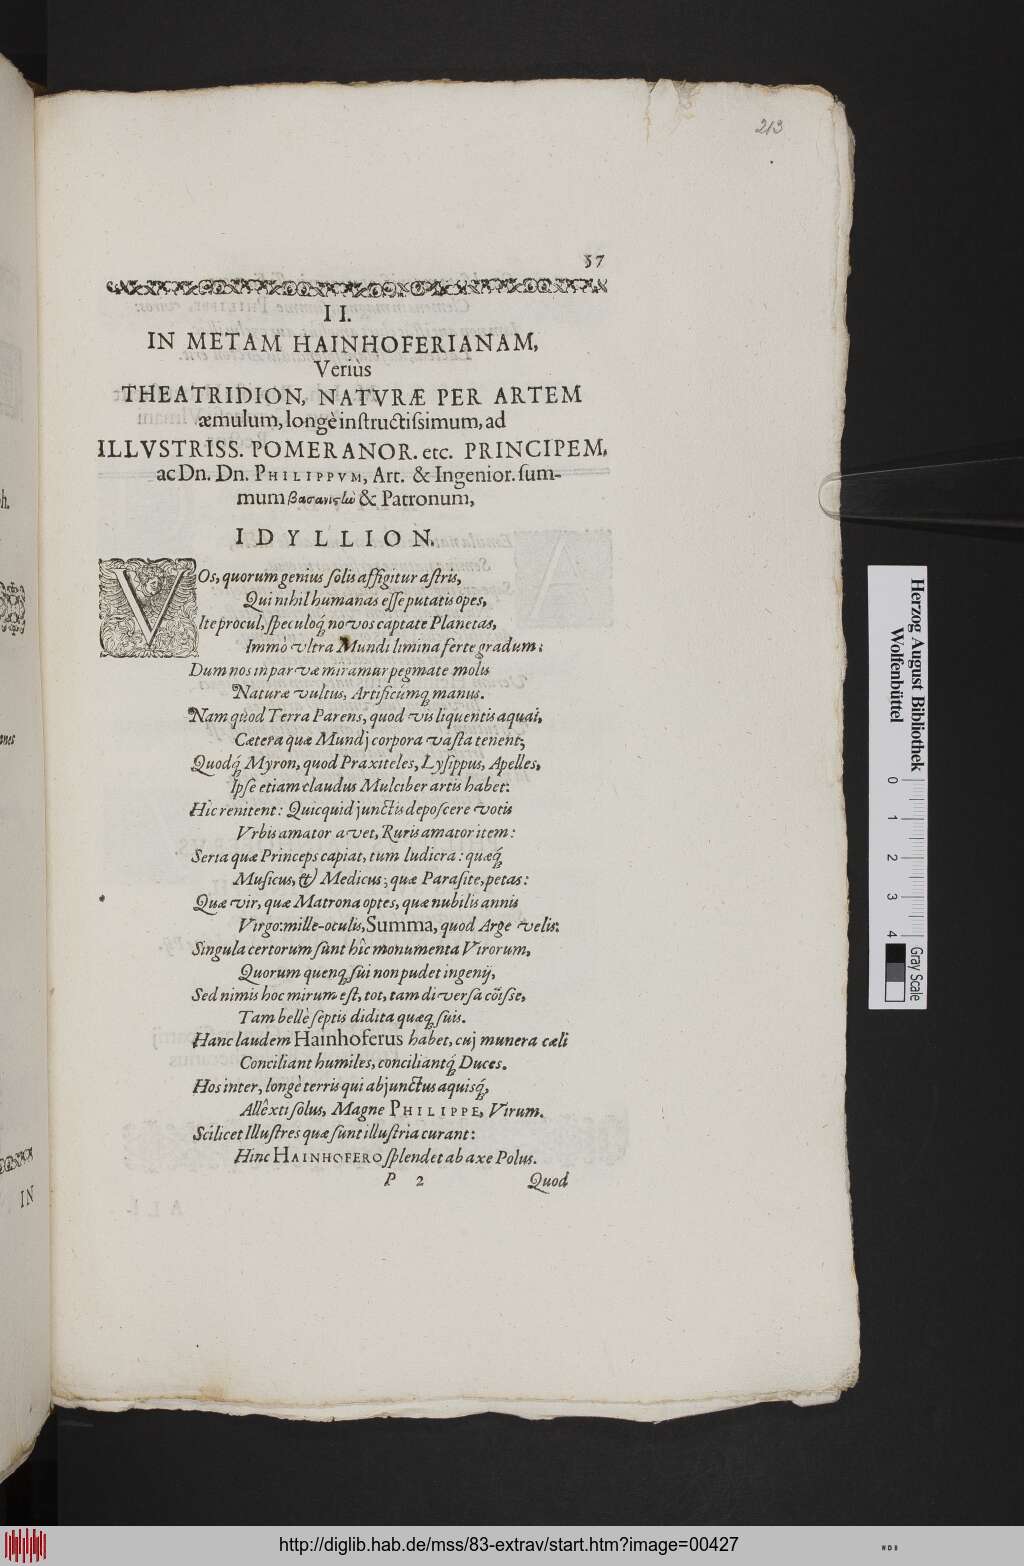 213
57
II.
IN METAM HAINHOFERIANAM,
Veriùs
THEATRIDION, NATVRÆ PER ARTEM
æmulum, longè inſtructiſsimum, ad
ILLVSTRISS. POMERANOR. etc. PRINCIPEM,
ac Dn. Dn. PHILIPPVM, Art. & Ingenior. ſum-
mum βασανιςὼ & Patronum,
IDYLLION.
VOs, quorum genius ſolis affigitur aſtris,
Qui nihil humanas eſſe putatis opes,
Ite procul, ſpeculoq́; novos captate Planetas,
Immò vltra Mundi limina ferte gradum:
Dum nos in parvæ miramur pegmate molis
Naturæ vultus, Artificúmq; manus.
Nam quòd Terra Parens, quod vis liquentis aquai,
Cætera quæ Mundj corpora vaſta tenent;
Quodq́; Myron, quod Praxiteles, Lyſippus, Apelles,
Ipſe etiam claudus Mulciber artis habet:
Hîc renitent: Quicquid junctis depoſcere votis
Vrbis amator avet, Ruris amator item:
Seria quæ Princeps capiat, tum ludicra: quæq́;
Muſicus, & Medicus; quæ Paraſite, petas:
Quæ vir, quæ Matrona optes, quæ nubilis annis
Virgo: mille-oculis, Summa, quod Arge velis:
Singula certorum ſunt hîc monumenta Virorum,
Quorum quenq; ſui non pudet ingenij,
Sed nimis hoc mirum eſt, tot, tam diverſa coîſſe,
Tam bellè ſeptis didita quæq; ſuis.
Hanc laudem Hainhoferus habet, cuj munera cæli
Conciliant humiles, conciliantq́; Duces.
Hos inter, longè terris qui abjunctus aquisq́;,
Allêxti ſolus, Magne PHILIPPE, Virum.
Scilicet Illuſtres quæ ſunt illuſtria curant:
Hinc HAINHOFERO ſplendet ab axe Polus.
P 2 Quod
IN
Herzog August Bibliothek
Wolfenbüttel
0 1 2 3 4
Gray Scale
http://diglib.hab.de/mss/83-extrav/start.htm?image=00427